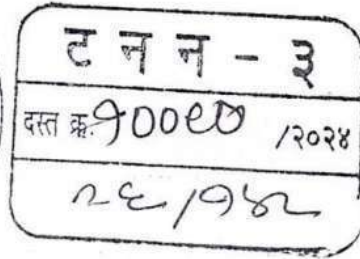 ट न न - ३
दस्त क्र. १००९७ /२०२४
२६/१४२